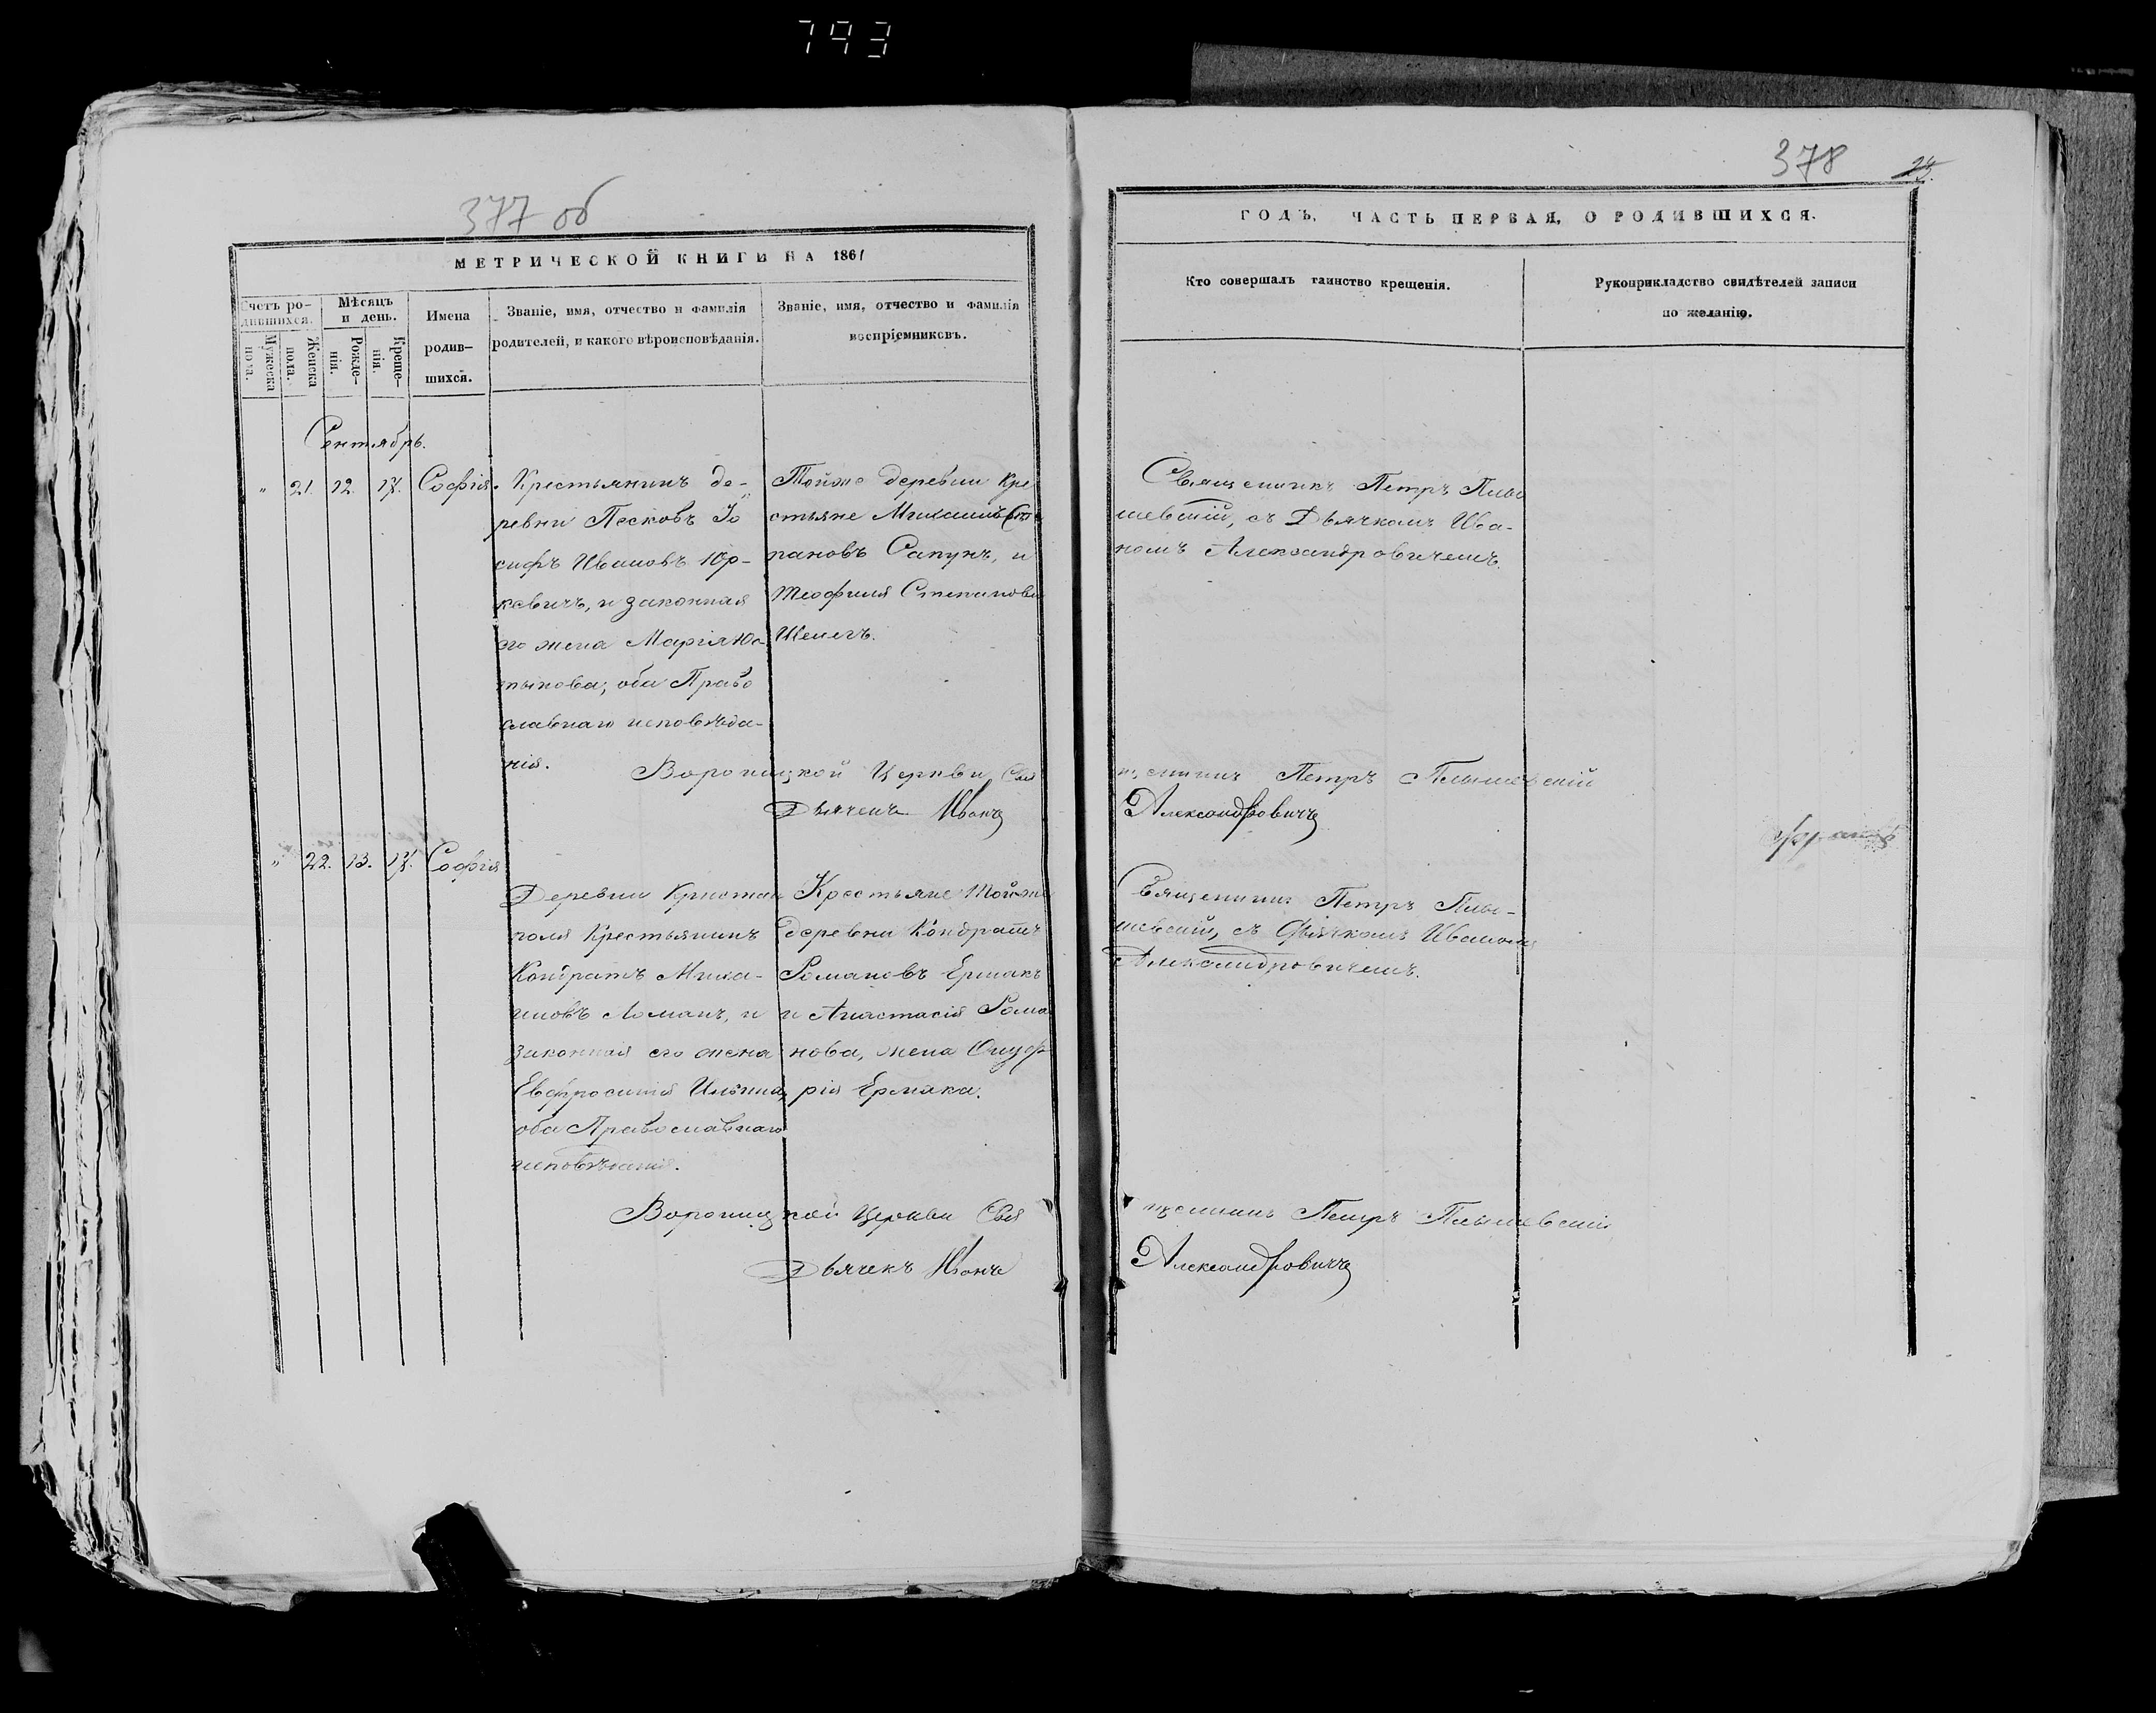 793
377 об
МЕТРИЧЕСКОЙ КНИГИ НА 1861
Счетъ родившихся.
Мужеска пола.
Женска пола.
Мѣсяцъ и день.
Рожденія.
Крещенія.
Имена родившихся.
Званіе, имя, отчество и фамилія
родителей, и какого вѣроисповѣданія.
Званіе, имя, отчество и фамилія
воспріемниковъ.
Сентябрь.
" 21. 12. 17. Софія.
Крестьянинъ де-
ревни Песковъ Іо
сифъ Ивановъ Юр-
кевичъ, и законная
его жена Марія
оба Право
славнаго исповѣда-
нія.
Тойже деревни Кре
стьяне Михаилъ Сте
пановъ Сапунъ, и
Теофиля Степанова
Шемегъ.
Вороницкой Церкви Свя
Дьячекъ Иванъ
" 22. 13. 17. Софія
Деревни
поля Крестьянинъ
Кондратъ Миха-
иловъ Ломанъ, и
законная его жена
Евфросинія Ильина,
оба Православнаго
исповѣданія.
Крестьяне тойже
деревни Кондратъ
Романовъ Ермакъ
и Анастасія Рома
нова, жена Онуф
рія Ермака.
Вороницкой Церкви Свя
Дьячекъ Иванъ
378
ГОДЪ, ЧАСТЬ ПЕРВАЯ, О РОДИВШИХСЯ.
Кто совершалъ таинство крещенія.
Рукоприкладство свидѣтелей записи
по желанію.
Священникъ Петръ Плы
шевскій, съ Дьячкомъ Ива-
номъ Александровичемъ.
щенникъ Петръ Плышевскій
Александровичъ
Священникъ Петръ Плы-
шевскій, съ Дьячкомъ Иваномъ
Александровичемъ.
щенникъ Петръ Плышевскій
Александровичъ